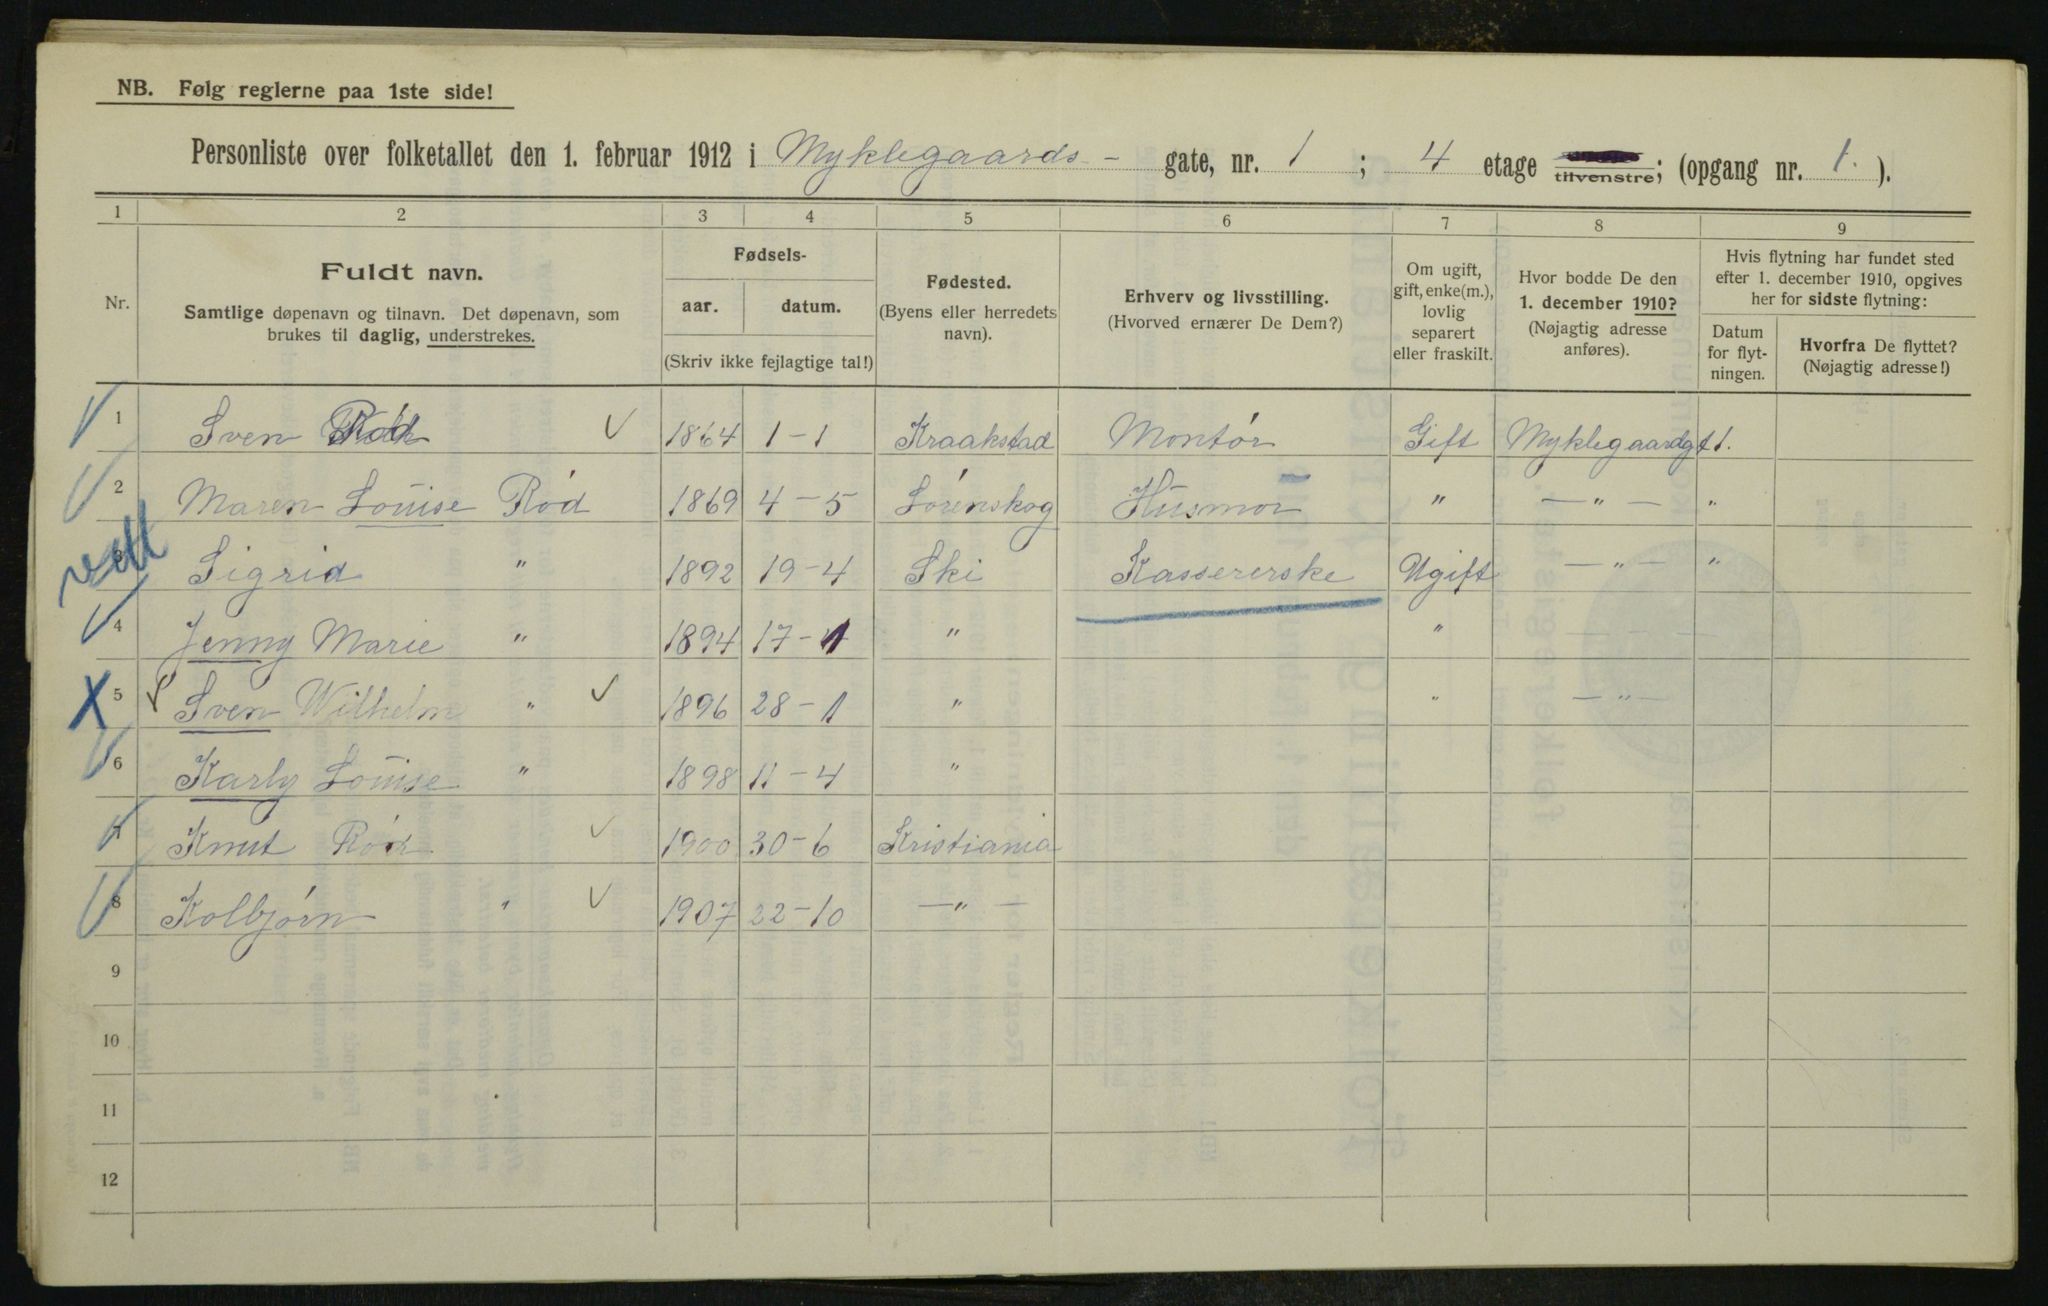 NB. Følg reglerne paa 1ste side!
Personliste over folketallet den 1. februar 1912 i Myklegaards- gate, nr. 1 ; 4 etage tilvenstre; (opgang nr. 1. ).
1 2 3 4 5 6 7 8 9
Nr.
Fuldt navn.
Samtlige døpenavn og tilnavn. Det døpenavn, som
brukes til daglig, understrekes.
Fødsels-
aar. datum.
(Skriv ikke fejlagtige tal!)
Fødested.
(Byens eller herredets
navn).
Erhverv og livsstilling.
(Hvorved ernærer De Dem?)
Om ugift,
gift, enke(m.),
lovlig
separert
eller fraskilt.
Hvor bodde De den
1. december 1910?
(Nøjagtig adresse
anføres).
Hvis flytning har fundet sted
efter 1. december 1910, opgives
her for sidste flytning:
Datum
for flyt-
ningen.
Hvorfra De flyttet?
(Nøjagtig adresse!)
1 Sven Rød 1864 1-1 Kraakstad Montør Gift Myklegaardgt 1.
2 Maren Louise Rød 1869 4-5 Lørenskog Husmor " —"— "
3 Sigrid " 1892 19-4 Ski Kassererske Ugift —"— "
4 Jenny Marie " 1894 17-1 " " — — —
5 Sven Wilhelm " 1896 28-1 " " —"—
6 Karly Louise " 1898 11-4 "
7 Knut Rød 1900 30-6 Kristiania
8 Kolbjørn " 1907 22-10 —"—
9
10
11
12